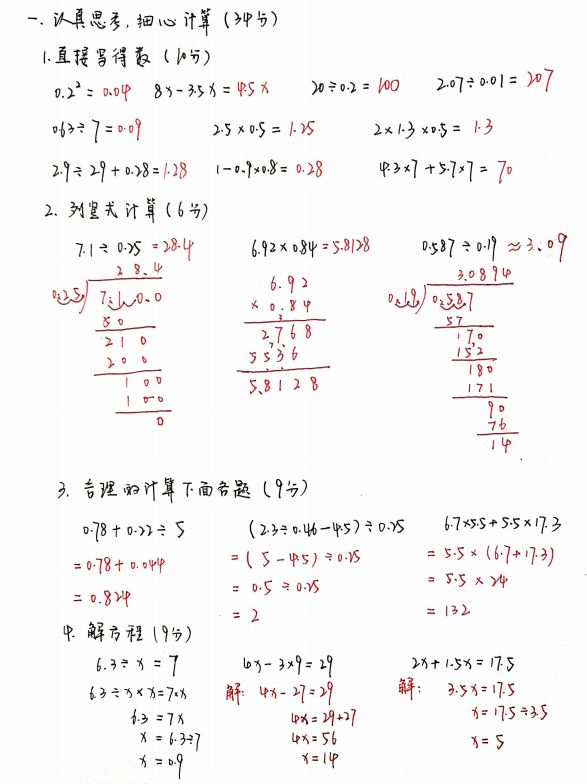 一、认真思考,细心计算(34分)
1.直接写得数(10分)
0.2²=0.04 8x-3.5x=4.5x 20÷0.2=100 2.07÷0.01=207
0.63÷7=0.09 2.5×0.5=1.25 2×1.3×0.5=1.3
2.9÷2.9+0.28=1.28 1-0.9×0.8=0.28 4.3×7+5.7×7=70
2.列竖式计算(6分)
7.1÷0.25=28.4 6.92×0.84=5.8128 0.587÷0.19≈3.09
28.4 6.92 3.0894
0.25 7.10.0 ×0.84 0.19 0.587
50 2768 57
210 5536 170
200 5.8128 152
100 180
100 171
0 90
76
14
3.合理的计算下面各题(9分)
0.78+0.22÷5 (2.3÷0.46-4.5)÷0.25 6.7×5.5+5.5×17.3
=0.78+0.044 =(5-4.5)÷0.25 =5.5×(6.7+17.3)
=0.824 =0.5÷0.25 =5.5×24
=2 =132
4.解方程(9分)
6.3÷x=7 4x-3×9=29 2x+1.5x=17.5
6.3÷x×x=7×x 解:4x-27=29 解:3.5x=17.5
6.3=7x 4x=29+27 x=17.5÷3.5
x=6.3÷7 4x=56 x=5
x=0.9 x=14